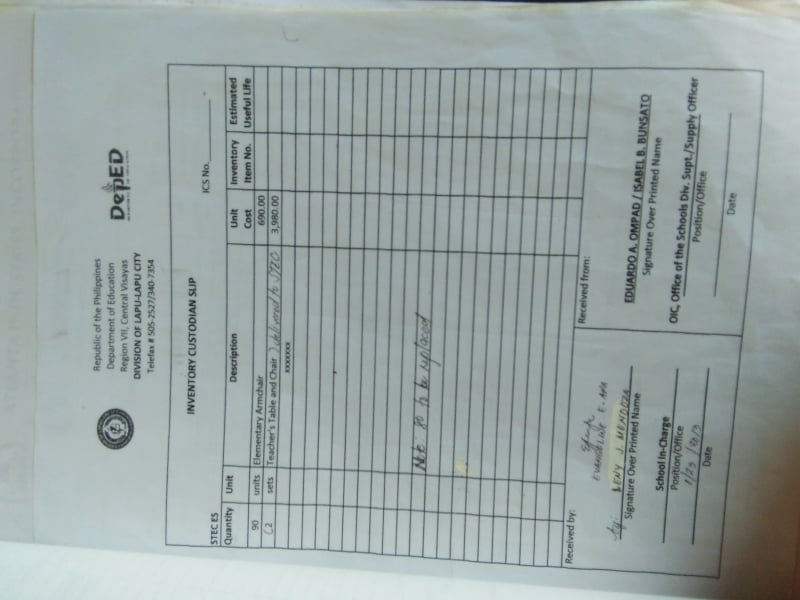 Republic of the Philippines
Department of Education
Region VII, Central Visayas
DIVISION OF LAPU-LAPU CITY
Telefax # 505-2527/340-7354
DepED
INVENTORY CUSTODIAN SLIP
ICS No.
STEC ES
Quantity Unit Description Unit Cost Inventory Item No. Estimated Useful Life
90 units Elementary Armchair 690.00
2 sets Teacher's Table and Chair delivered to 3,980.00
xxxxxxx
Note: 80 to be replaced
Received by:
Received from:
by: LENY J. MENDOZA
Signature Over Printed Name
School In-Charge
Position/Office
Date
EDUARDO A. OMPAD / ISABEL B. BUNSATO
Signature Over Printed Name
OIC, Office of the Schools Div. Supt./Supply Officer
Position/Office
Date